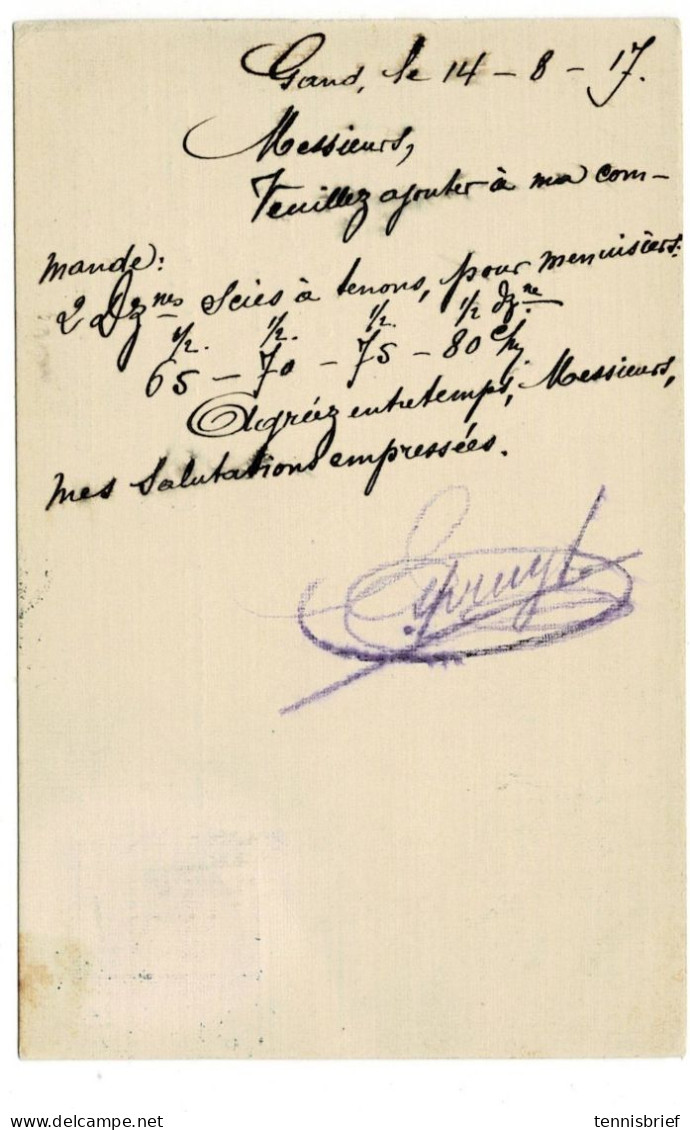 Gand, le 14 - 8 - 17.
Messieurs,
Veuillez ajouter à ma com-
mande:
2 Dz nes Scies à tenons, pour menuisiers:
1/2. 1/2. 1/2. 1/2 dz. ne
65 - 70 - 75 - 80 c/m.
Agréez entretemps, Messieurs,
mes salutations empressées.
tennisbrief